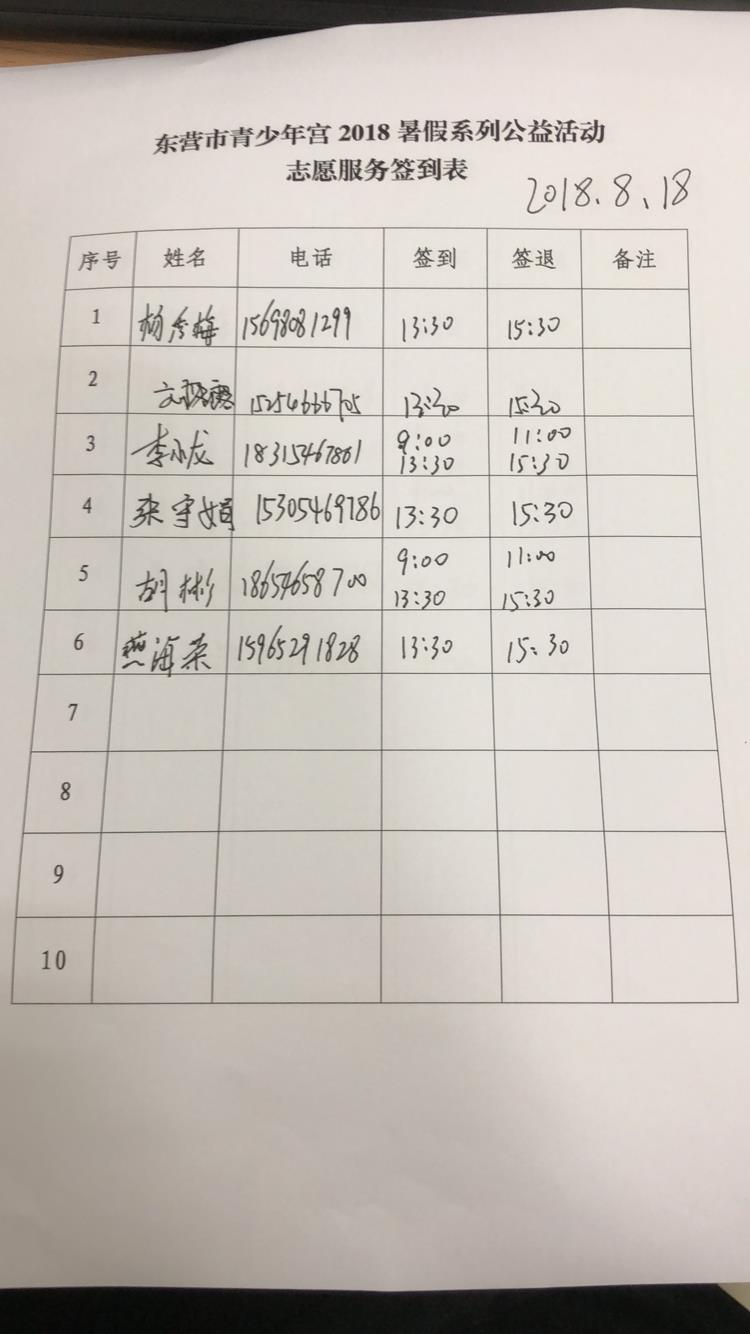 东营市青少年宫 2018 暑假系列公益活动
志愿服务签到表
2018.8.18
序号 姓名 电话 签到 签退 备注
1 杨秀梅 15698081299 13:30 15:30
2 15254666705 13:30 15:30
3 李小龙 18315467861 9:00 11:00
13:30 15:30
4 张守娟 15305469786 13:30 15:30
5 胡彬 18654658700 9:00 11:00
13:30 15:30
6 燕海荣 15965291828 13:30 15:30
7
8
9
10